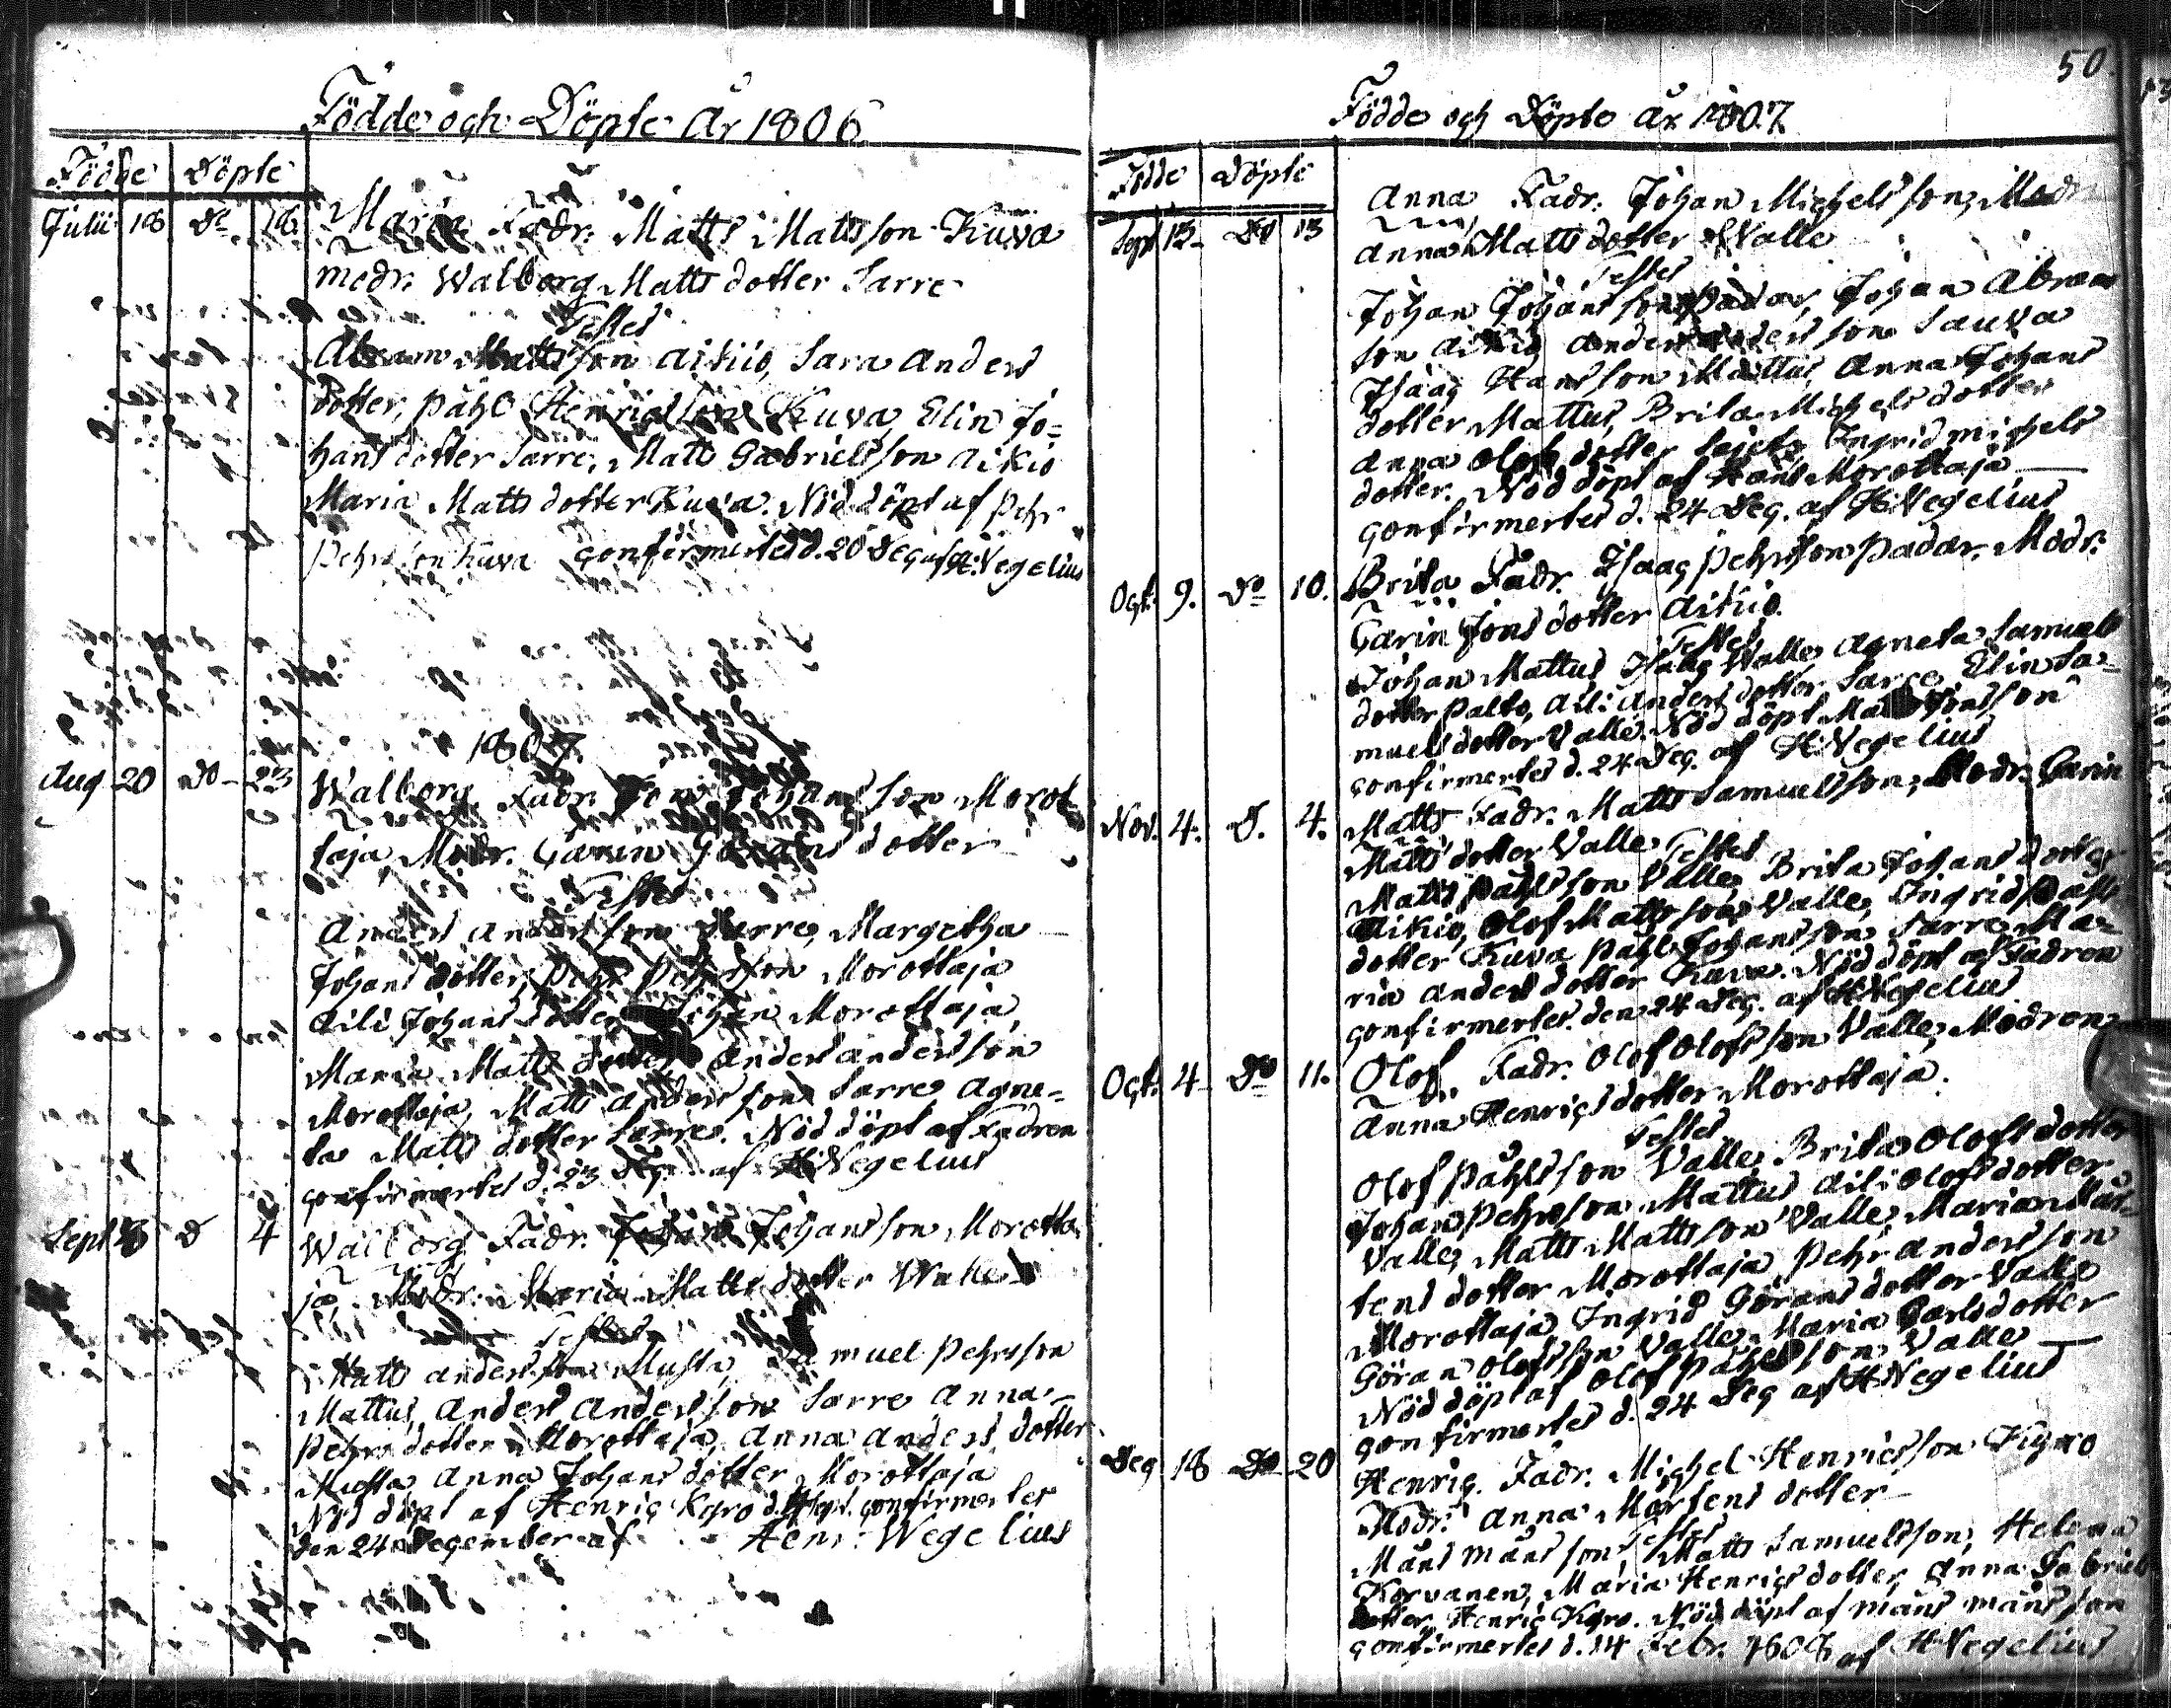 Födde och Döpte År 1806
Födde Döpte
Julii 18 Do 18 Maria Fadr. Matts Matsson Kuva
modr. Walborg Matts dotter Sarre
Testes
Abram Mattsson Aikio, Sara Anders
dotter, Påhl Henricsson Kuva, Elin Jo=
hans dotter Sarre, Matts Gabrielsson Aikio
Maria Matts dotter Kuva. Nöd döpt af Pehr
Pehrsson Kuva confirmertes d. 20 Dec af H. Wegelius
1807.
Aug 20 Do 23 Walborg. Fadr. Johansson Morot
taja, Modr. Carin dotter
Testes
Anders Andersson Sarre, Margetha
Johans dotter, Pehr Pehrsson Morottaja
Aili Johans dotter Johan Morottaja,
Maria Matts dotter Anders Andersson
Morottaja, Matts Andersson Sarre, Agne=
ta Matts dotter Sarre. Nöd döpt af Fadren
confirmertes d. 23 af H Wegelius
Sept D 4 Walborg Fadr. Johansson Morotta
ja, Modr. Maria Matts dotter Walle
Testes
Matts Andersson Musta, Samuel Pehrsson
Mattus, Anders Andersson Sarre Anna
Pehrs dotter Morottaja, Anna Anders dotter
Musta Anna Johans dotter Morottaja
Nöd döpt af Henric Kyro d. 4 Sept. confirmertes
den 24 December af Henr: Wegelius
50
Födde och Döpte År 1807
Födde Döpte
Sept 13 Do 13 Anna Fadr. Johan Michelsson, Modr
Anna Matts dotter Walle
Testes
Johan Johansson Padar, Johan Abram
son Aikio Anders Andersson Sauva
Isaac Hansson Mattus, Anna Johans
dotter Mattus, Brita Michels dotter
Anna Olofs dotter Ingrid Michels
dotter. Nöd döpt af Hans Morottaja
confirmertes d. 24 Dec. af H Wegelius
Oct. 9. Do 10. Brita Fadr. Isaac Pehrsson Padar. Modr.
Carin Jons dotter Aikio.
Testes
Johan Mattus Isaac Walle Agneta Samuels
dotter Palto, Aili Anders dotter Sarre Elin Sa=
muels dotter Valle. Nöd döpt Jonsson
confirmertes d. 24 Dec. af H Wegelius
Nov. 4. D. 4. Matts Fadr. Matts Samuelsson, Modr. Carin
Matts dotter Valle
Testes
Matts Påhlsson Valle, Brita Johans dotter
Aikio, Olof Mattsson Valle, Ingrid Påhls
dotter Kuva Påhl Johansson Sarre Ma=
ria Anders dotter Kuva. Nöd döpt af Fadren
confirmertes. den 24 Dec. af H Wegelius
Oct. 4 Do 11. Olof. Fadr. Olof Olofsson Valle, Modren
Anna Henrics dotter Morottaja.
Testes
Olof Påhlsson Valle, Brita Olofs dotter
Johan Pehrsson Mattus Aili Olofs dotter
Valle, Matts Mattsson Valle, Maria Mår=
tens dotter Morottaja Pehr Andersson
Morottaja Ingrid Görans dotter Valle
Göran Olofsson Valle, Maria Carls dotter
Nöd döpt af Olof Påhlsson Valle
confirmertes d. 24 Dec af H Wegelius
Dec 18 Do 20 Henric. Fadr. Michel Henricsson Kyro
Modr. Anna Mårtens dotter
Testes
Måns Månsson, Matts Samuelsson, Helena
Korvanen, Maria Henrics dotter, Anna Gabriels
dotter, Henric Kyro. Nöd döpt af Måns Månsson
confirmertes d. 14 Febr. 1808 af H Wegelius